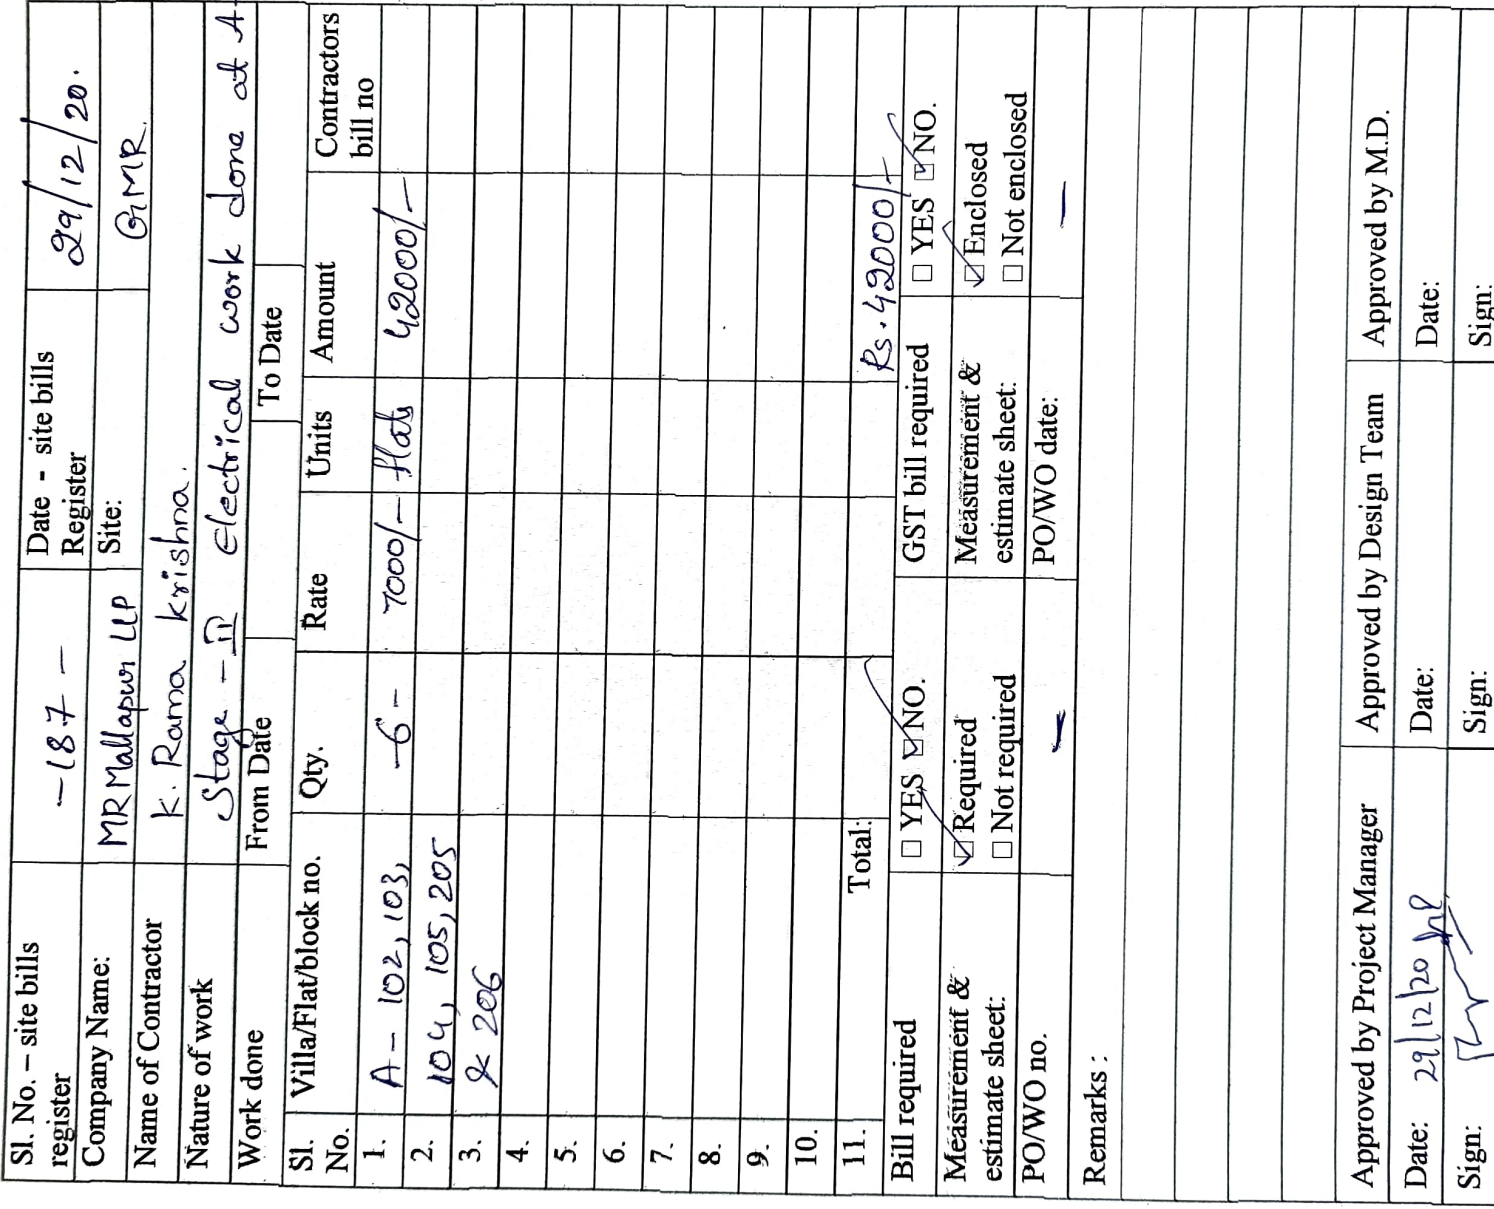 Sl. No. – site bills register -187- Date - site bills Register 29/12/20.
Company Name: MR Mallapur LLP Site: GMR.
Name of Contractor K. Rama Krishna.
Nature of work Stage - II electrical work done at A-
Work done From Date To Date
Sl. No. Villa/Flat/block no. Qty. Rate Units Amount Contractors bill no
1. A - 102, 103, -6- 7000/- flats 42000/-
2. 104, 105, 205
3. & 206
4.
5.
6.
7.
8.
9.
10.
11. Total: Rs. 42000/-
Bill required ☐ YES ☑ NO. GST bill required ☐ YES ☑ NO.
Measurement & estimate sheet: ☑ Required ☐ Not required Measurement & estimate sheet: ☑ Enclosed ☐ Not enclosed
PO/WO no. - PO/WO date: -
Remarks :
Approved by Project Manager Approved by Design Team Approved by M.D.
Date: 29/12/20 Date: Date:
Sign: Sign: Sign: